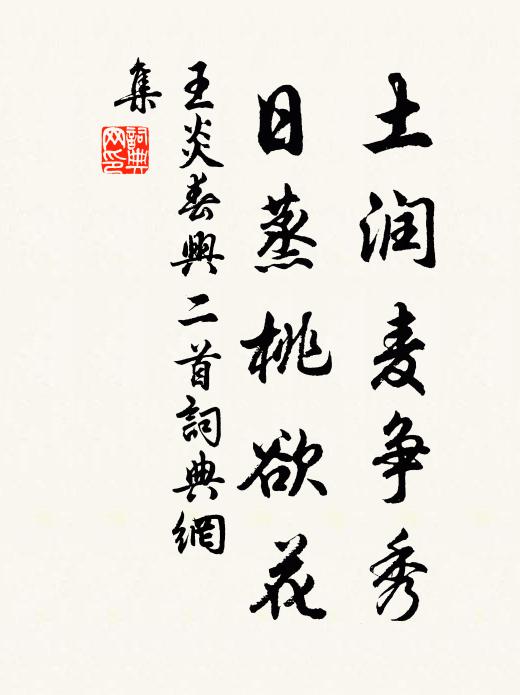 土润麦争秀
日蒸桃欲花
王炎春興二首詞典網
集
詞典网印